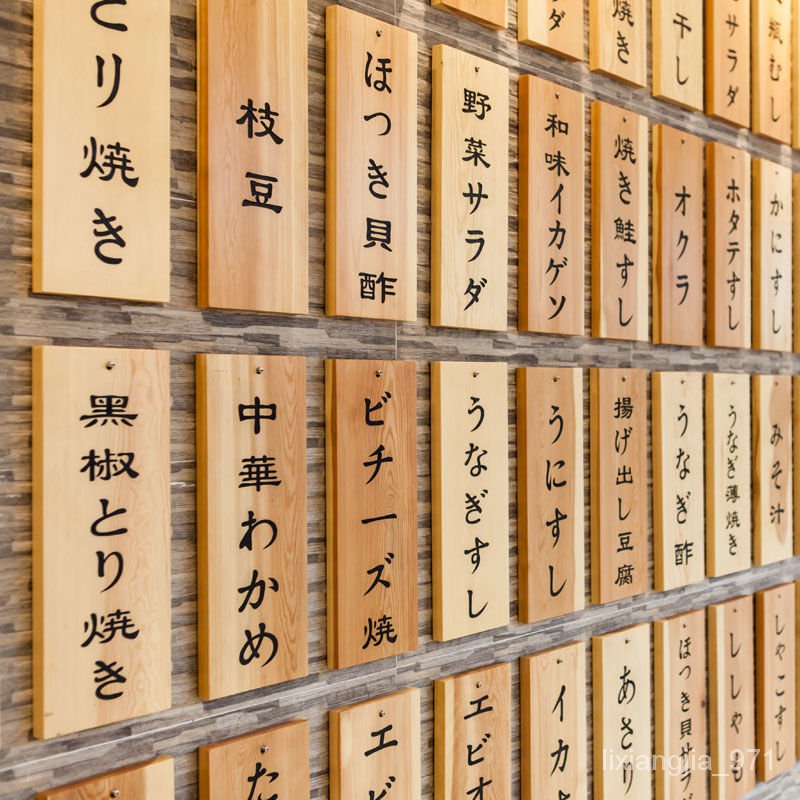 ダ
焼き
干し
サラダ
瓶むし
り焼き
枝豆
ほっき貝酢
野菜サラダ
和味イカゲソ
焼き鮭すし
オクラ
ホタテすし
かにすし
黒椒とり焼き
中華わかめ
ビチーズ焼
うなぎすし
うにすし
揚げ出し豆腐
うなぎ酢
うなぎ薄焼き
みそ汁
た
エビ
エビオ
イカ
あさり
ほっき貝サラダ
ししゃも
しゃこすし
lixiangjia_971